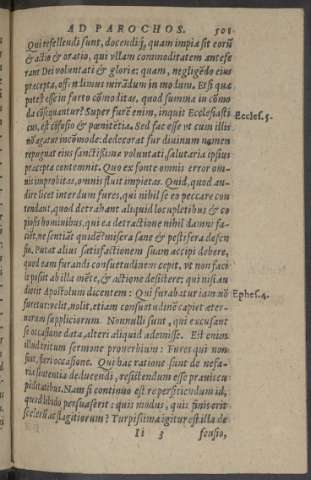 AD PAROCHOS. 501
Qui refellendi sunt, docendiq́, quam impia sit eorũ
& actio & oratio, qui vllam commoditatem antefe
rant Dei voluntati & gloriæ: quam, negligẽdo eius
præcepta, offendimus mirãdum in modum. Et si quæ
potest esse in furto cõmoditas, quod summa incõmo
da cõsequantur? Super furẽ enim, inquit Ecclesiasti
cus, est cõfusio & pœnitẽtia. Sed fac esse vt cum illis
nõ agatur incõmodè: dedecorat fur diuinum nomen
repugnat eius sanctissimæ voluntati, salutaria ipsius
præcepta contemnit. Quo ex fonte omnis error om-
nis improbitas, omnis fluit impietas. Quid, quod au-
dire licet interdum fures, qui nihil se eo peccare con
tendant, quod detrahant aliquid locupletibus & co
piosis hominibus, qui ea detractione nihil damni fa-
ciãt, ne sentiãt quidẽ? misera sane & pestifera defen
sio. Putat alius satisfactionem suam accipi debere,
quod eam furandi consuetudinem cepit, vt non faci
le possit ab illa mẽte, & actione desistere; qui nisi au
dierit Apostolum dicentem: Qui furabatur iam nõ
furetur: velit, nolit, etiam consuetudinẽ capiet æter-
norum suppliciorum. Nonnulli sunt, qui excusant
se occasione data, alteri aliquid ademisse. Est enim
illud tritum sermone prouerbium: Fures qui non
sunt, fieri occasione. Qui hac ratione sunt de nefa-
ria sententia deducendi, resistendum esse prauis cu
piditatibus. Nam si continuo est re perficiendum id,
quod libido persuaserit: quis modus, quis finis erit
scelerũ ac flagitiorum? Turpissima igitur est illa de-
Ii 3 fensio,
Eccles. 5.
Ephes. 4.